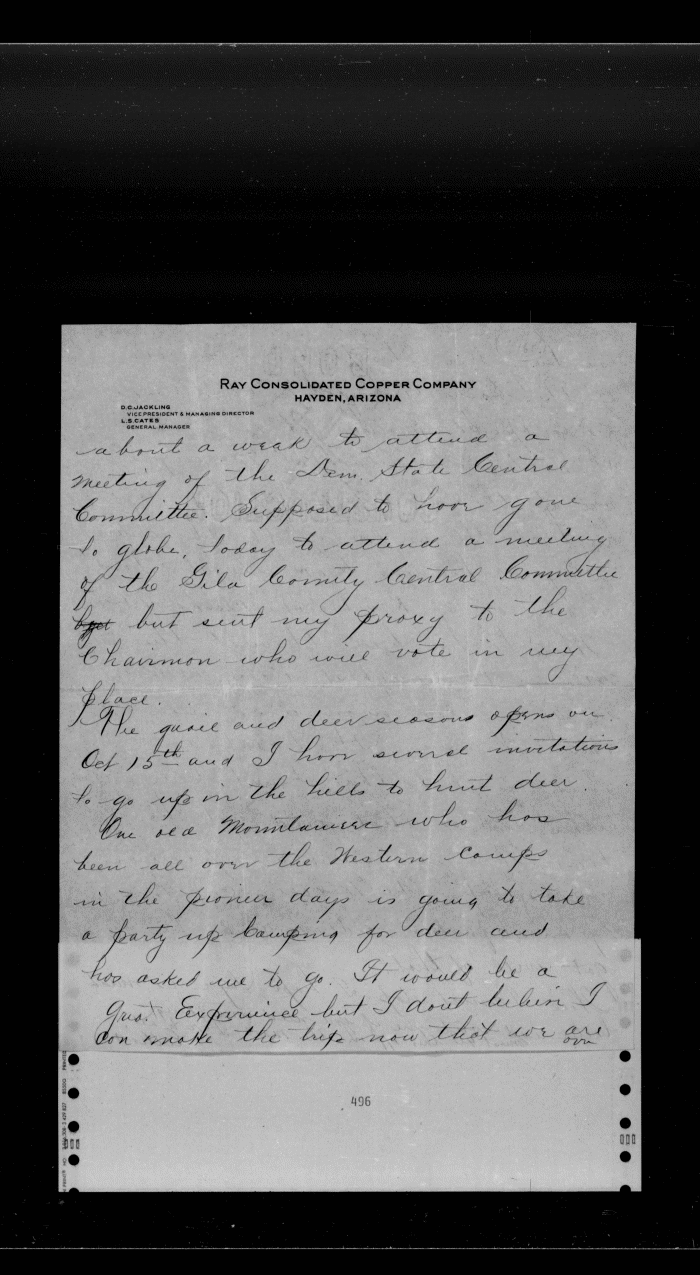 RAY CONSOLIDATED COPPER COMPANY
HAYDEN, ARIZONA
D.C. JACKLING
VICE PRESIDENT & MANAGING DIRECTOR
L.S. CATES
GENERAL MANAGER
about a week to attend a
meeting of the Dem. State Central
Committee. Supposed to have gone
to globe, today to attend a meeting
of the Gila County Central Committee
but sent my proxy to the
Chairman who will vote in my
place.
The quail and deer seasons opens on
Oct 15th and I have several invitations
to go up in the hills to hunt deer.
One old Mountaineer who has
been all over the Western Camps
in the pioneer days is going to take
a party up Camping for deer and
has asked me to go. It would be a
great Experience but I dont believe I
can make the trip now that we are
over
496